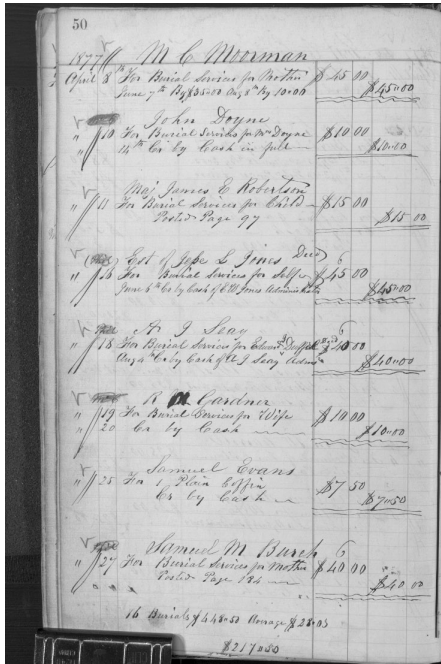 50
1877 M C Moorman
April 8th For Burial Services for Mother $45 00
June 7th By $35=00 Aug 8th By 10=00 $45=00
John Doyne
" 10 For Burial Services for Mrs Doyne $10 00
14th Cr by Cash in full $10=00
Maj James E Robertson
" 11 For Burial Services for Child $15 00
Posted Page 97 $15 00
Est of L Jones Decd 6
" 16 For Burial Services for Self $45 00
June 4th Cr by Cash of Jones Administrator $45=00
A J Seay 6
" 18 For Burial Services for Edward $40 00
Aug 4th Cr by Cash of A J Seay Admr $40=00
R Gardner
" 19 For Burial Services for Wife $10 00
20 Cr by Cash $10=00
Samuel Evans
" 25 For 1 Plain Coffin $7 50
Cr by Cash $7=50
Samuel M Burch 6
" 27 For Burial Services for Mother $40 00
Posted Page 184 $40 00
16 Burials $448=50 Average $28=03
$217=50